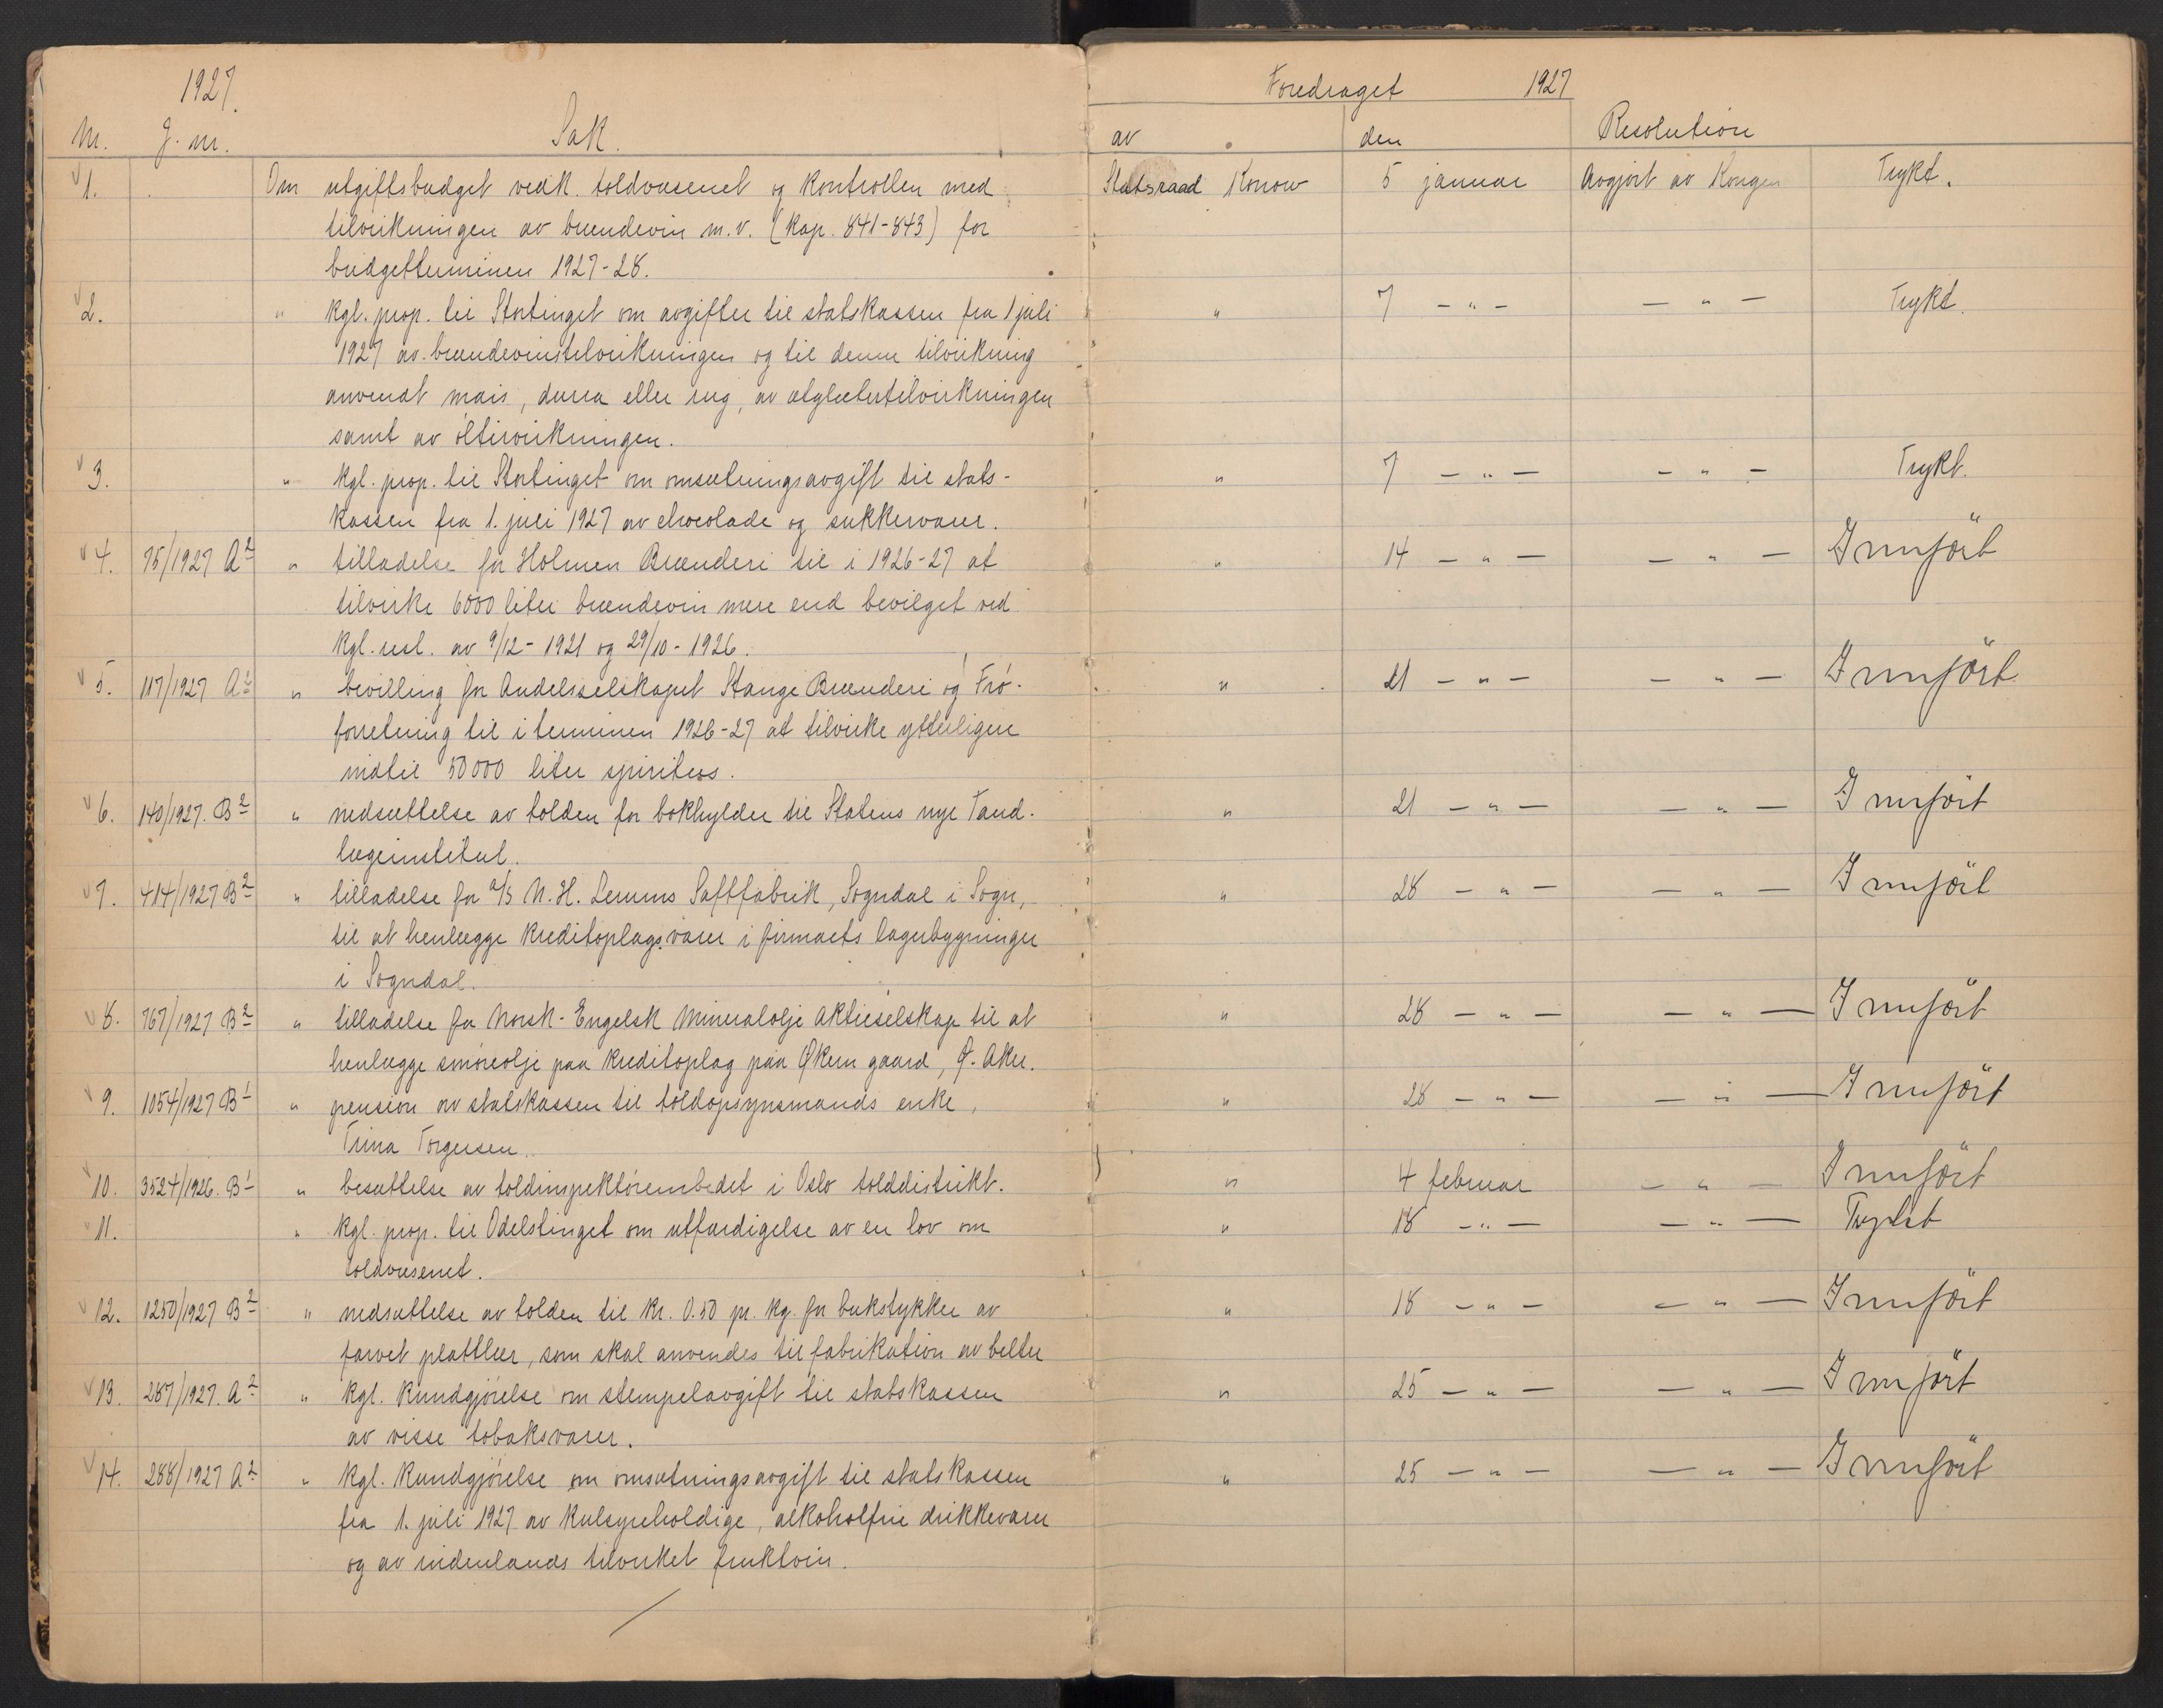 1927.
Nr. J. nr. Sak.
Foredraget 1927
av den Resolution
1. Om utgiftsbudget vedk. toldvæsenet og kontrollen med Statsraad Konow 5 januar Avgjort av Kongen Trykt.
tilvirkningen av brændevin m.v. (Kap. 841-843) for
budgetterminen 1927-28.
2. " Kgl. prop. til Stortinget om avgifter til statskassen fra 1 juli " 7 - " - - " - Trykt.
1927 av brændevinstilvirkningen og til denne tilvirkning
anvendt mais, durra eller rug, av ætylætertilvirkningen
samt av öltilvirkningen.
3. " Kgl. prop. til Stortinget om omsætningsavgift til stats- " 7 - " - - " - Trykt.
kassen fra 1. juli 1927 av chocolade og sukkervarer.
4. 75/1927 A2 " tilladelse for Holmen Brænderi til i 1926-27 at " 14 - " - - " - Innfört
tilvirke 6000 liter brændevin mere end bevilget ved
Kgl. resl. av 9/12-1921 og 29/10-1926.
5. 117/1927 A2 " bevilling for Andelsselskapet Stange Brænderi og Frö- " 21 - " - - " - Innfört
forretning til i terminen 1926-27 at tilvirke ytterligere
indtil 50000 liter spiritus.
6. 140/1927. B2 " nedsættelse av tolden for bokhylder til Statens nye Tand- " 21 - " - - " - Innfört
lægeinstitut.
7. 414/1927 B2 " tilladelse for A/S N. H. Lerums Saftfabrik, Sogndal i Sogn, " 28 - " - - " - Innfört
til at henlægge kreditoplagsvarer i firmaets lagerbygninger
i Sogndal.
8. 767/1927 B2 " tilladelse for Norsk-Engelsk Mineralolje Aktieselskap til at " 28 - " - - " - Innfört
henlægge smøreolje paa kreditoplag paa Økern gaard, Ø. Aker.
9. 1054/1927 B1 " pension av statskassen til toldopsynsmands enke, " 28 - " - - " - Innfört
Trina Torgersen.
10. 3524/1926. B1 " besættelse av toldinspektörembedet i Oslo tolddistrikt. " 4 februar - " - Innfört
11. " Kgl. prop. til Odelstinget om utfærdigelse av en lov om " 18 - " - - " - Trykt
toldvæsenet.
12. 1250/1927 B2 " nedsættelse av tolden til Kr. 0.50 pr. kg. for bukstykker av " 18 - " - - " - Innfört
farvet plattlær, som skal anvendes til fabrikation av belter
13. 287/1927. A2 " Kgl. Kundgjörelse om stempelavgift til statskassen " 25 - " - - " - Innfört
av visse tobaksvarer.
14. 288/1927 A2 " Kgl. Kundgjörelse om omsætningsavgift til statskassen " 25 - " - - " - Innfört
fra 1. juli 1927 av kulsyreholdige, alkoholfrie drikkevarer
og av indenlands tilvirket fruktvin.